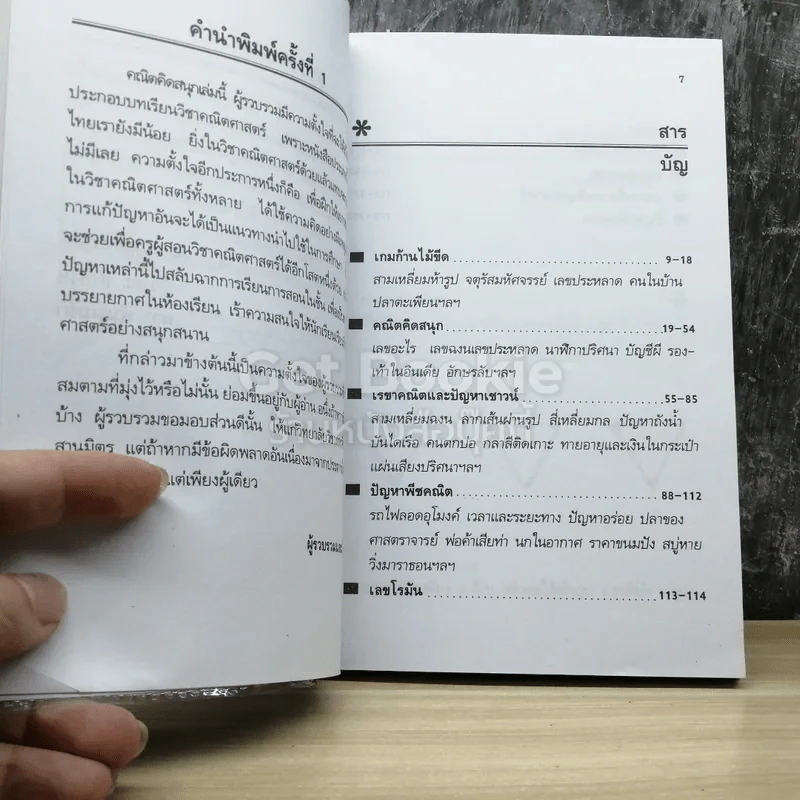 คำนำพิมพ์ครั้งที่ 1
คณิตคิดสนุกเล่มนี้ ผู้รวบรวมมีความตั้งใจที่จะให้
ประกอบบทเรียนวิชาคณิตศาสตร์ เพราะหนังสือประเภท
ไทยเรายังมีน้อย ยิ่งในวิชาคณิตศาสตร์ด้วยแล้ว
ไม่มีเลย ความตั้งใจอีกประการหนึ่งก็คือ เพื่อฝึกให้
ในวิชาคณิตศาสตร์ทั้งหลาย ได้ใช้ความคิดอย่าง
การแก้ปัญหาอันจะได้เป็นแนวทางนำไปใช้ในการศึกษา
จะช่วยเพื่อครูผู้สอนวิชาคณิตศาสตร์ได้อีกโสตหนึ่งด้วย
ปัญหาเหล่านี้ไปสลับฉากการเรียนการสอนในชั้น
บรรยากาศในห้องเรียน เร้าความสนใจให้นักเรียน
ศาสตร์อย่างสนุกสนาน
ที่กล่าวมาข้างต้นนี้เป็นความตั้งใจของ
สมตามที่มุ่งไว้หรือไม่นั้น ย่อมขึ้นอยู่กับผู้อ่าน
บ้าง ผู้รวบรวมขอมอบส่วนดีนั้น ให้แก่วิทยาลัย
สานมิตร แต่ถ้าหากมีข้อผิดพลาดอันเนื่องมาจาก
แต่เพียงผู้เดียว
ผู้รวบรวม
7
* สาร
บัญ
เกมก้านไม้ขีด 9–18
สามเหลี่ยมห้ารูป จตุรัสมหัศจรรย์ เลขประหลาด คนในบ้าน
ปลาตะเพียนฯลฯ
คณิตคิดสนุก 19–54
เลขอะไร เลขฉงนเลขประหลาด นาฬิกาปริศนา บัญชีผี รอง-
เท้าในอินเดีย อักษรลับฯลฯ
เรขาคณิตและปัญหาเชาวน์ 55–85
สามเหลี่ยมฉงน ลากเส้นผ่านรูป สี่เหลี่ยมกล ปัญหาถังน้ำ
บันไดเรือ คนตกบ่อ กลาสีติดเกาะ ทายอายุและเงินในกระเป๋า
แผ่นเสียงปริศนาฯลฯ
ปัญหาพีชคณิต 88–112
รถไฟลอดอุโมงค์ เวลาและระยะทาง ปัญหาอร่อย ปลาของ
ศาสตราจารย์ พ่อค้าเสียท่า นกในอากาศ ราคาขนมปัง สบู่หาย
วิ่งมาราธอนฯลฯ
เลขโรมัน 113–114
Got Bookie
ร้านหนังสือกู๊ดบุ๊คกี้